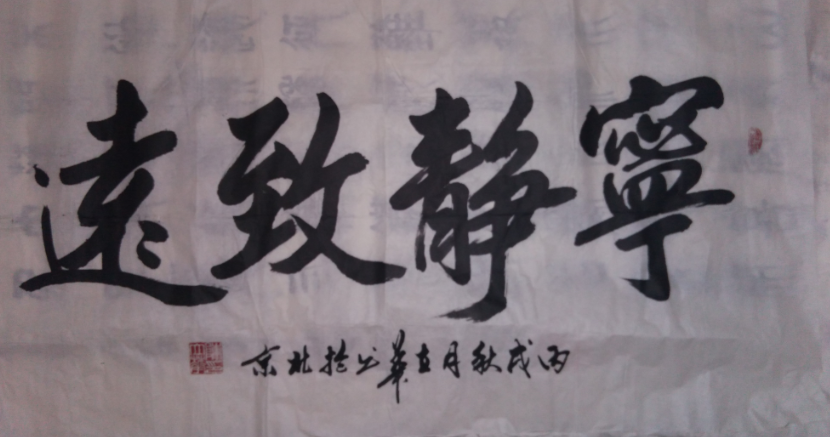 寧靜致遠
丙戌秋月華书於北京